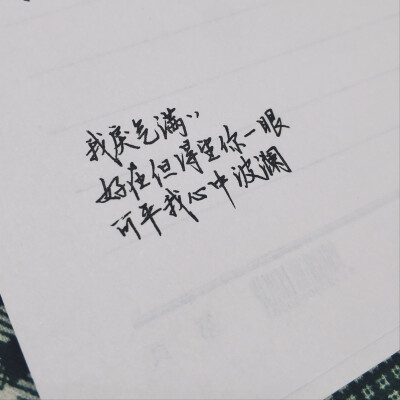 我戾气满〃
好在但得望你一眼
可平我心中波澜